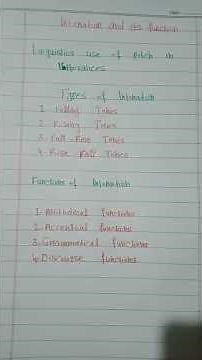 Intonation and its function
Linguistics use of pitch in
utterances
Types of Intonation
1. Falling Tones
2. Rising Tones
3. Fall Rise Tones
4. Rise Fall Tones
Functions of Intonation
1. Attitudinal functions
2. Accentual functions
3. Grammatical functions
4. Discourse functions